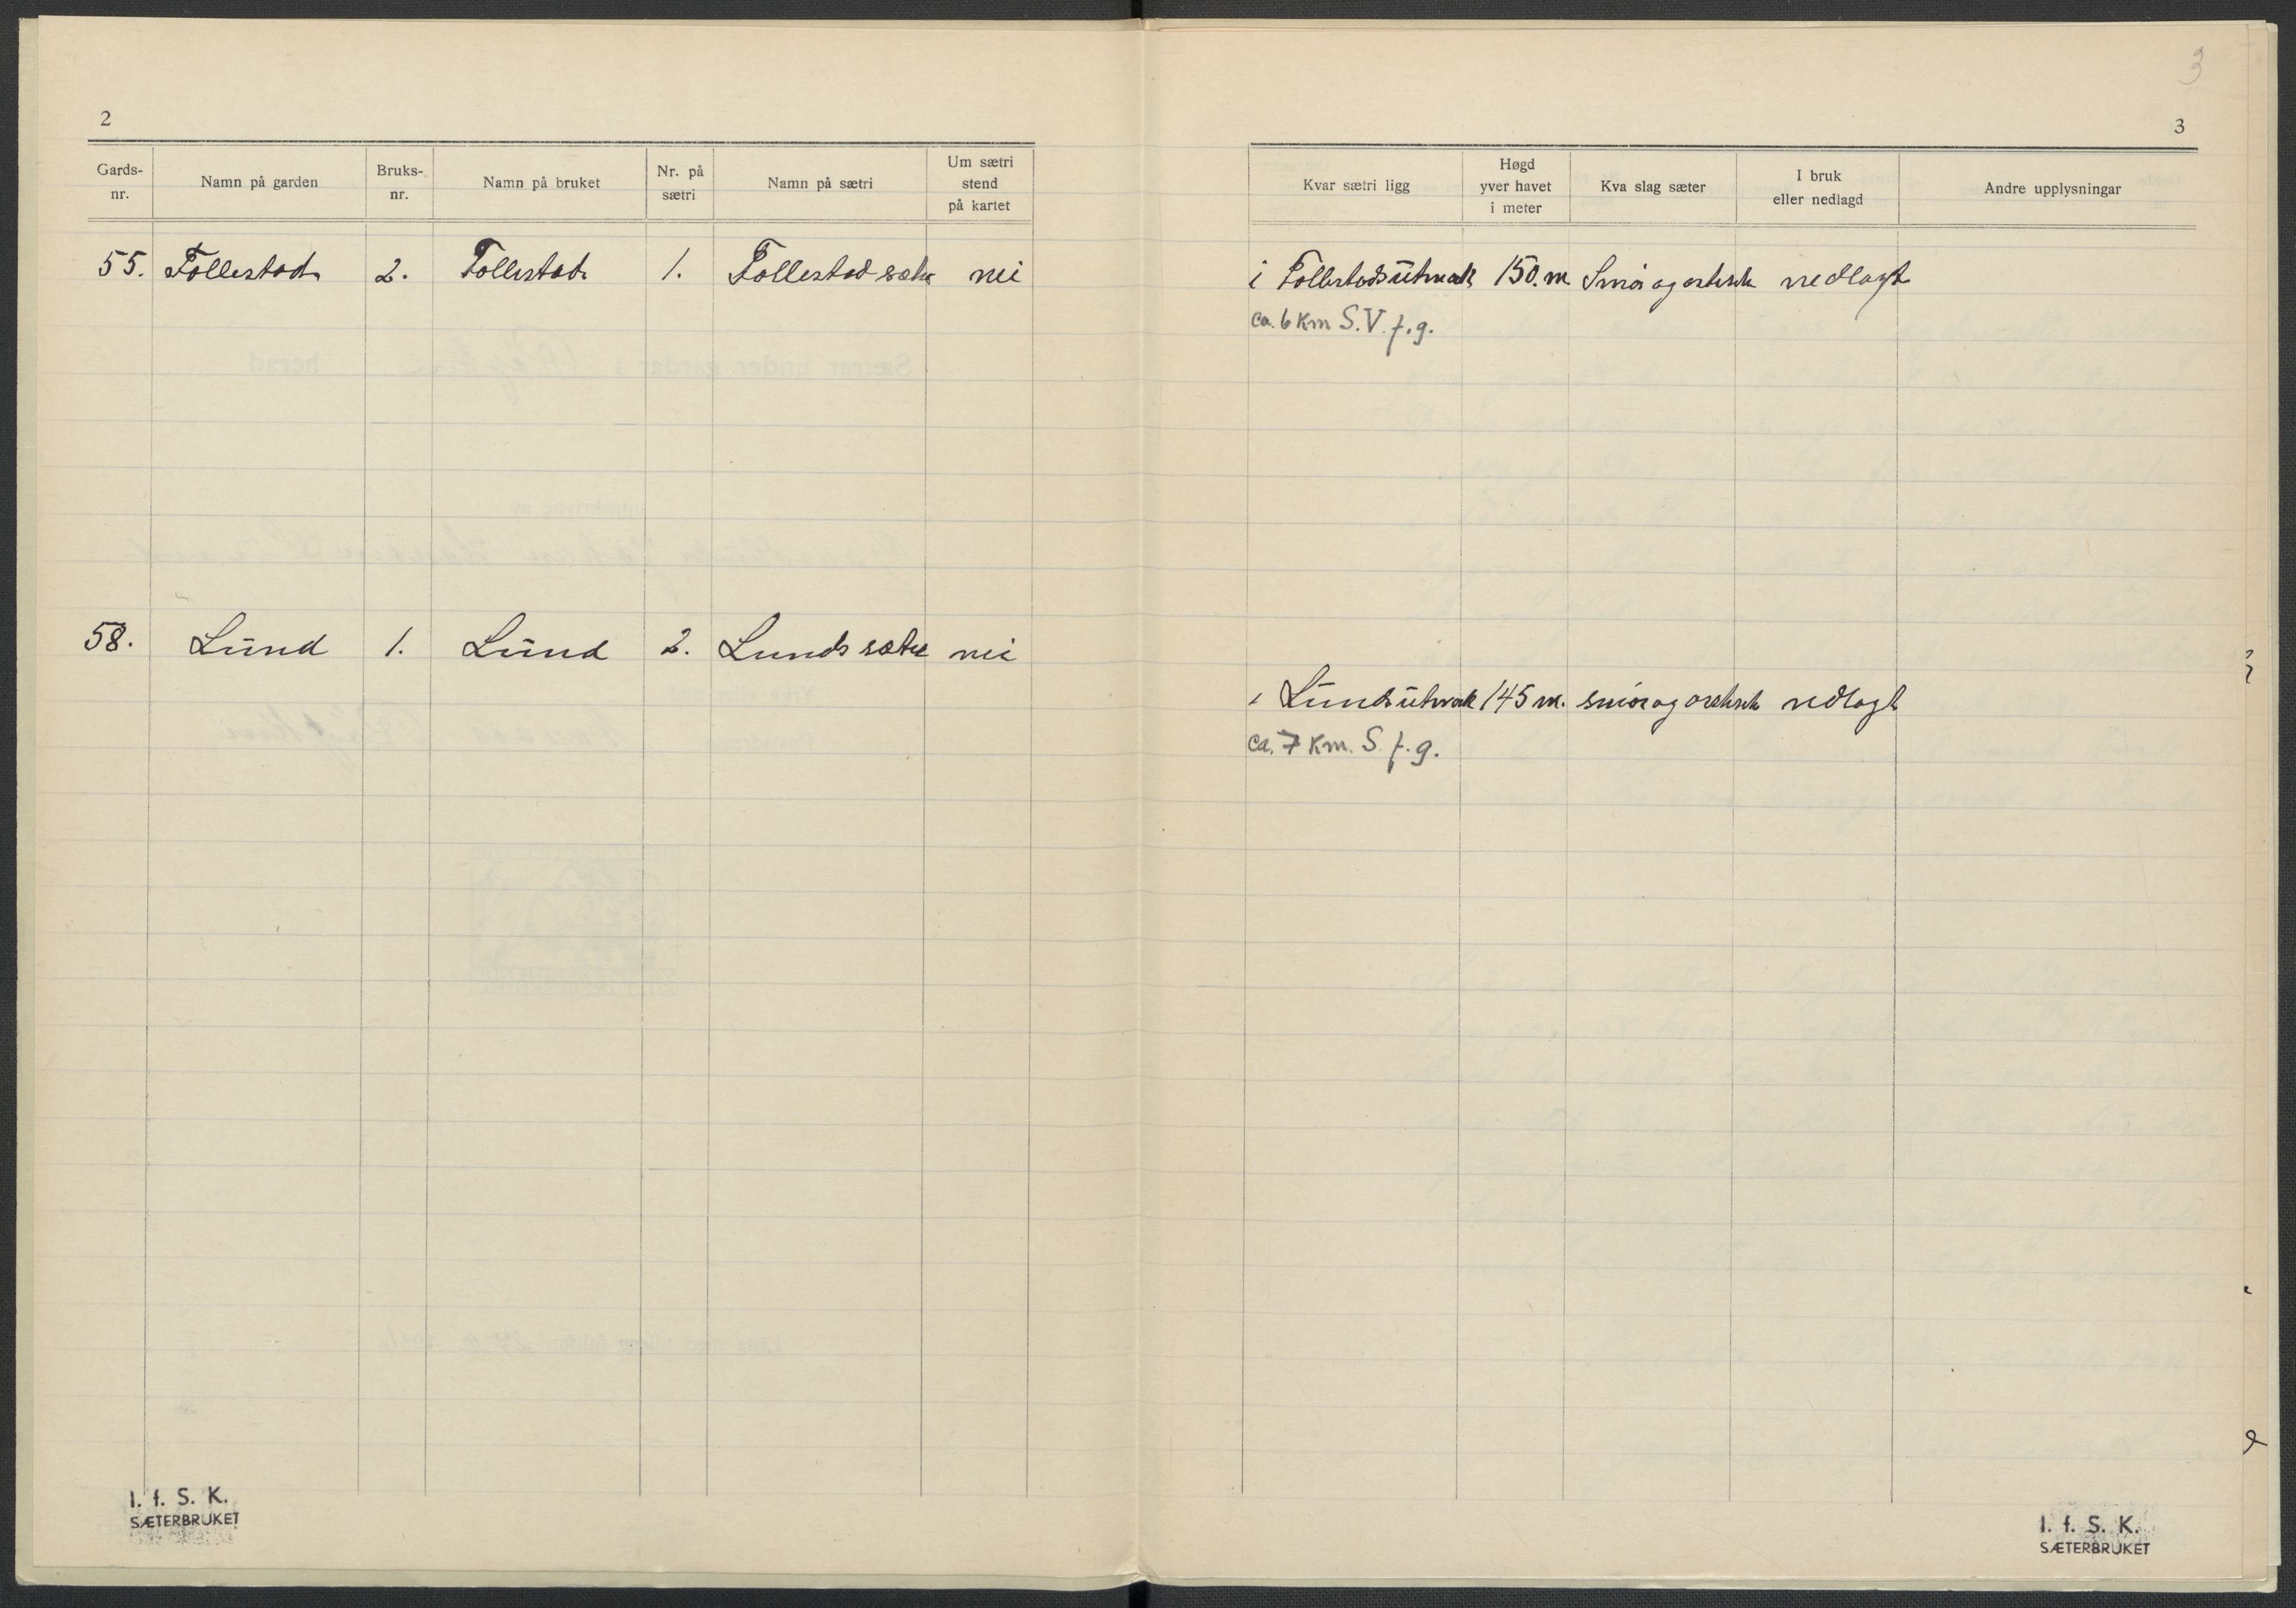 3
2
3
Gards-nr. Namn på garden Bruks-nr. Namn på bruket Nr. på sætri Namn på sætri Um sætri stend på kartet
Kvar sætri ligg Høgd yver havet i meter Kva slag sæter I bruk eller nedlagd Andre upplysningar
55. Follestad 2. Follestad 1. Follestad sæter nei
i Follestads utmark 150. m Smör og ostesæter nedlagt
ca. 6 Km S.V. f. g.
58. Lund 1. Lund 2. Lunds sæter nei
i Lunds utmark 145 m. smör og ostesæter nedlagt
ca. 7 Km. S. f. g.
I. f. S. K.
SÆTERBRUKET
I. f. S. K.
SÆTERBRUKET